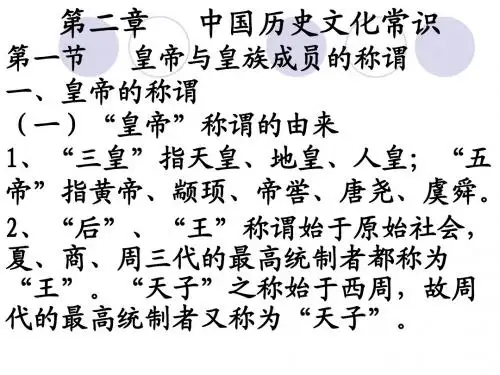 第二章　　中国历史文化常识
第一节　　皇帝与皇族成员的称谓
一、皇帝的称谓
（一）“皇帝”称谓的由来
1、“三皇”指天皇、地皇、人皇；“五
帝”指黄帝、颛顼、帝喾、唐尧、虞舜。
2、“后”、“王”称谓始于原始社会，
夏、商、周三代的最高统制者都称为
“王”。“天子”之称始于西周，故周
代的最高统制者又称为“天子”。